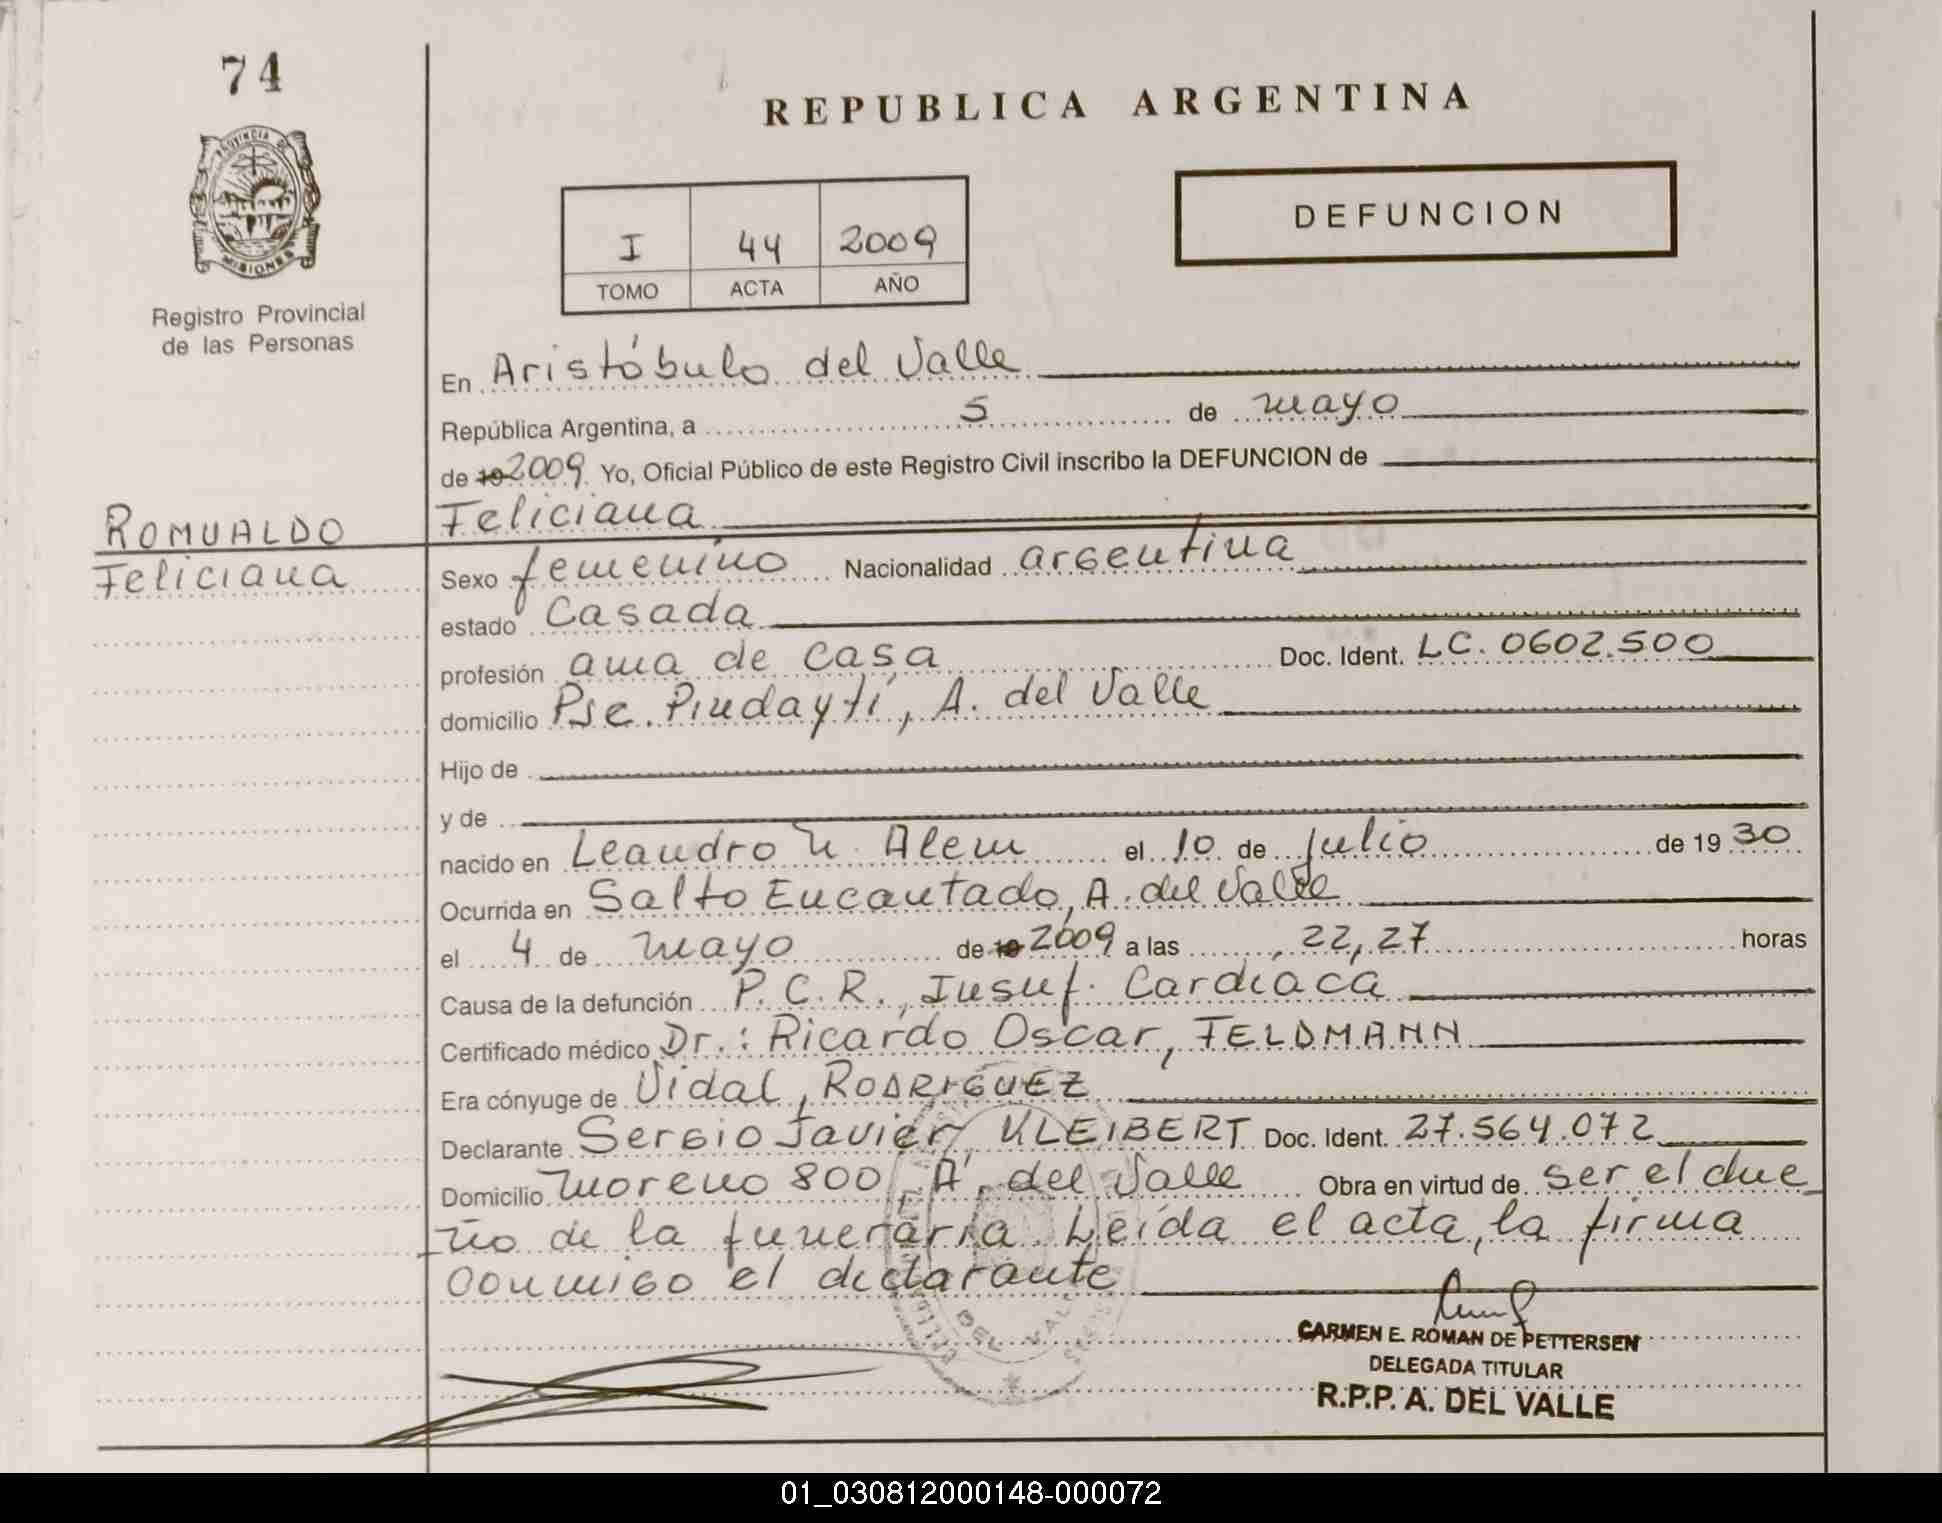 74
REPUBLICA ARGENTINA
PROVINCIA DE
MISIONES
Registro Provincial
de las Personas
I 44 2009
TOMO ACTA AÑO
DEFUNCION
En Aristóbulo del Valle
República Argentina, a 5 de mayo
de 19 2009 Yo, Oficial Público de este Registro Civil inscribo la DEFUNCION de
ROMUALDO
Feliciana
Feliciana
Sexo femenino Nacionalidad argentina
estado Casada
profesión ama de casa Doc. Ident. LC. 0602.500
domicilio Pje. Pindaytí, A. del Valle
Hijo de
y de
nacido en Leandro N. Alem el 10 de julio de 19 30
Ocurrida en Salto Encantado, A. del Valle
el 4 de mayo de 19 2009 a las 22,27 horas
Causa de la defunción P.C.R., Insuf. Cardíaca
Certificado médico Dr.: Ricardo Oscar, FELDMANN
Era cónyuge de Vidal, RODRIGUEZ
Declarante Sergio Javier, KLEIBERT Doc. Ident. 27.564.072
Domicilio Moreno 800, A. del Valle Obra en virtud de ser el due
ño de la funeraria. Leída el acta, la firma
conmigo el declarante
DEL VALLE
CARMEN E. ROMAN DE PETTERSEN
DELEGADA TITULAR
R.P.P. A. DEL VALLE
01_030812000148-000072